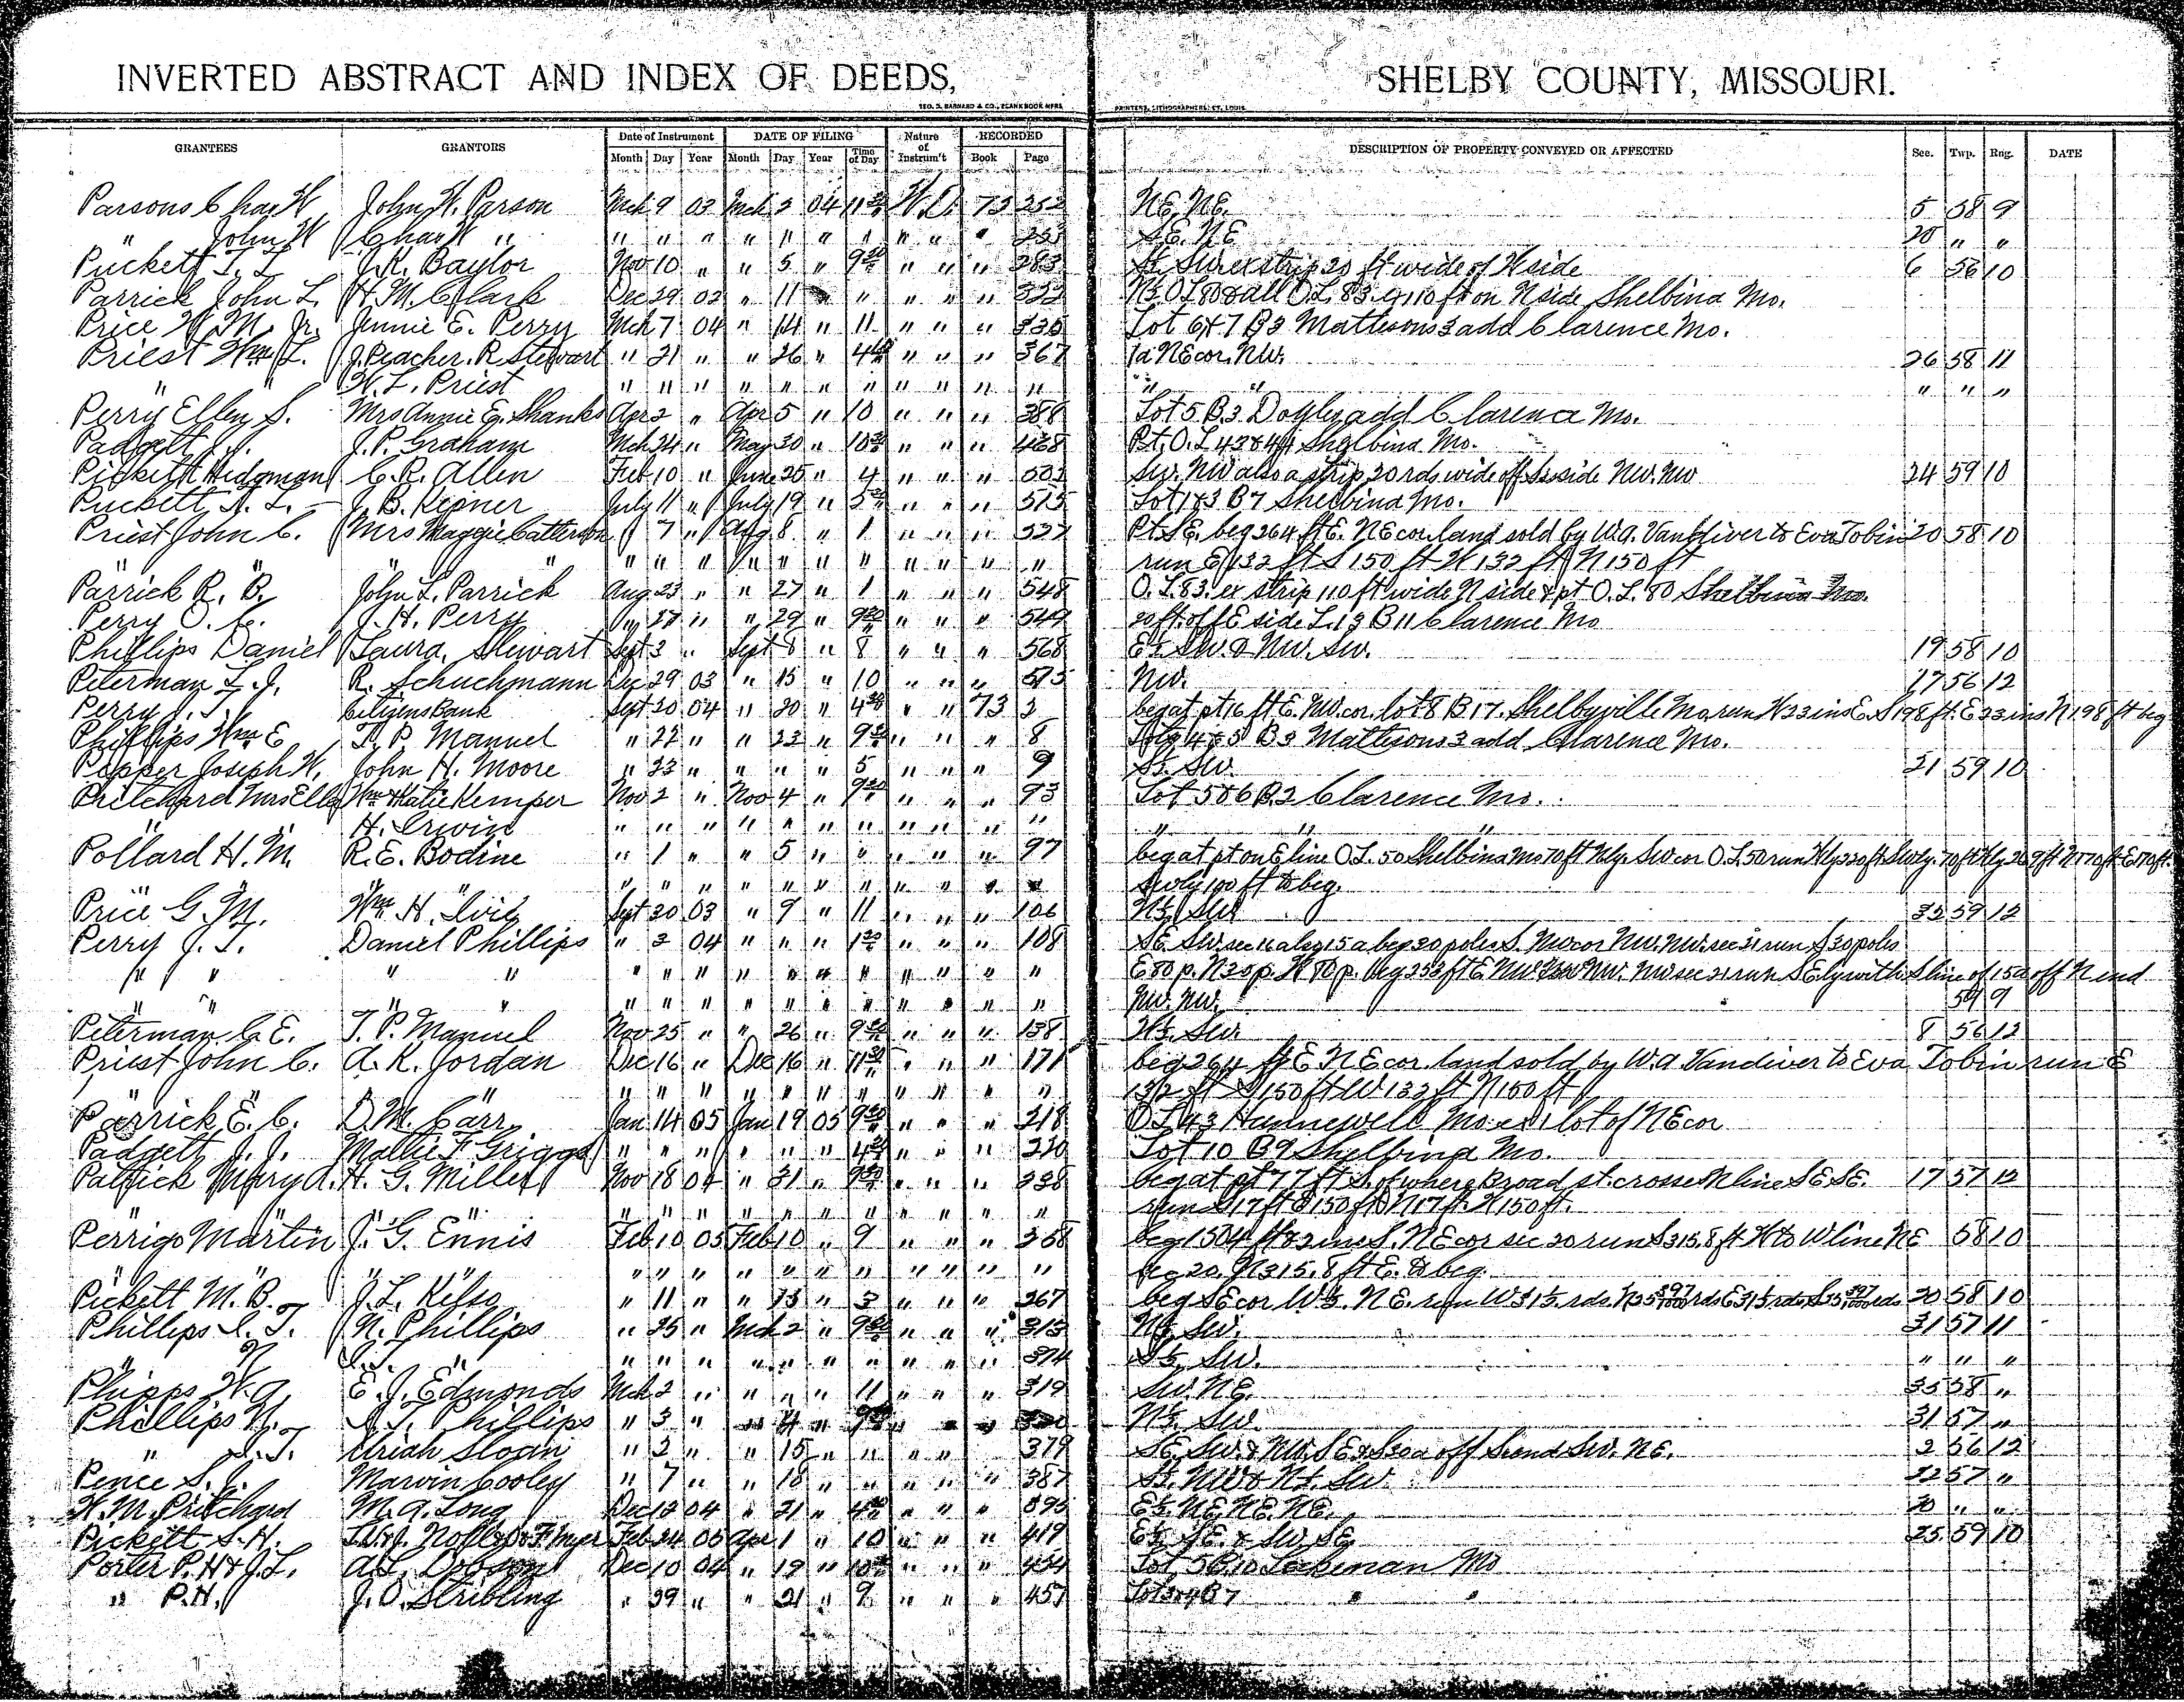 INVERTED ABSTRACT AND INDEX OF DEEDS, SHELBY COUNTY, MISSOURI.
GEO. D. BARNARD & CO., BLANK BOOK MFRS. PRINTERS, LITHOGRAPHERS, ST. LOUIS
GRANTEES GRANTORS Date of Instrument DATE OF FILING Nature of Instrum't RECORDED DESCRIPTION OF PROPERTY CONVEYED OR AFFECTED Sec. Twp. Rng. DATE
Month Day Year Month Day Year Time of Day Book Page
Parsons Chas W John W. Parson Mch 9 03 Mch 2 04 11 30 W.D. 73 252 NE. NE. 5 58 9
" John W Chas W " " " " " " " " " " " 253 SE. NE 20 " "
Puckett T. L. J.R. Baylor Nov 10 " " 5 " 9 30 " " " 283 ft wide of W side 6 56 10
Parrick John L. H.M. Clark Dec 29 03 " 11 " " " " 322 110 ft on N side Shelbina Mo.
Price W.M. Jr. Jennie E. Perry Mch 7 04 " 14 " 11 " " " 336 Lot 6 & 7 B 3 Mattisons 3 add Clarence Mo.
Priest Wm L. J. Peacher. R Stewart " 21 " " 26 " 4 40 " " " 367 1a NE cor. NW. 26 58 11
" " W. L. Priest " " " " " " " " " " " " " " " "
Perry Ellen S. Mrs Annie E. Shanks Apr 2 " Apr 5 " 10 " " " 388 Lot 5 B. 3 Doyles add Clarence Mo.
Padgett J.J. J.P. Graham Mch 24 " May 30 " 10 30 " " " 468 Pt. O.L 43 & 44 Shelbina Mo.
Pickett Hidgman C.R. Allen Feb 10 " June 25 " 4 " " " 503 SW. NW also a strip 20 rds wide off S side NW. NW 24 59 10
Puckett J. L. J. B. Kesner July 11 " July 19 " 5 " " " 515 Lot 1 & 3 B 7 Shelbina Mo.
Priest John C. Mrs Maggie Catterson " 7 " Aug 8 " 1 " " " 527 Pt. SE. beg 264 ft E. NE cor. land sold by W.A. Vandiver to Eva Tobin 20 58 10
" " " " " " " " " " " " " " run E 132 ft S 150 ft W 132 ft N 150 ft
Parrick R. B. John L. Parrick Aug 23 " " 27 " 1 " " " 548 O.L. 83. ex strip 110 ft wide N side & pt O.L. 80 Shelbina Mo.
Perry O. C. J. H. Perry " 27 " " 29 " 9 30 " " " 549 20 ft. off E side L. 13 B 11 Clarence Mo
Phillips Daniel Laura Stewart Sept 3 " Sept 8 " 8 " " " 568 E½ SW. & NW. SW. 19 58 10
Peterman L. J. R. Schuchmann Dec 29 03 " 15 " 10 " " " 573 NW. 17 56 12
Perry J. T. Citizens Bank Sept 20 04 " 20 " 4 30 " " 73 2 beg at pt 16 ft E. NW. cor. lot 8 B 17. Shelbyville Mo, run W 23 ins E. S 198 ft. E 23 ins N 198 ft beg
Phillips Wm E T. P. Manuel " 22 " " 23 " 9 30 " " " 8 Lots 4 & 5 B 3 Mattisons 3 add Clarence Mo.
Popper Joseph W. John H. Moore " 23 " " " " 5 " " " 9 S½. SW. 21 59 10
Pritchard Mrs Ella Wm & Katie Kemper Nov 2 " Nov 4 " 9 30 " " " 93 Lot 5 & 6 B. 2 Clarence Mo.
" " H. Erwin " " " " " " " " " " " " " "
Pollard H. M. R.E. Bodine " 1 " " 5 " " " " 97 beg at pt on E line O.L. 50 Shelbina Mo 70 ft Nly SW cor O.L. 50 run Nly 220 ft Swly. 70 ft
" " " " " " " " " " " " " Swly 100 ft to beg.
Price G. M. Wm H. Ivie Sept 20 03 " 9 " 11 " " " 106 N½ SW 35 59 12
Perry J. T. Daniel Phillips " 2 04 " " " 1 30 " " " 108 SE. SW. sec 16 also 15 a beg 20 poles S. NW cor NW. NW. sec 21 run S 30 poles
" " " " " " " " " " " " " " " E 80 p. N 30 p. W 80 p. beg 253 ft E NW NW. NW sec 21 run S Ely with S line of 15a off N end
" " " " " " " " " " " " " " " NW. NW. 59 9
Peterman C. E. T. P. Manuel Nov 25 " " 26 " 9 30 " " " 138 W½. SW. 8 56 12
Priest John C. A. K. Jordan Dec 16 " Dec 16 " 11 30 " " " 171 beg 264 ft E. NE cor. land sold by W.A Vandiver to Eva Tobin run E
" " " " " " " " " " " " " 132 ft S 150 ft W 132 ft N 150 ft
Parrick E. C. D. M. Carr Jan 14 05 Jan 19 05 9 30 " " " 218 O.L 43 Hunnewell Mo. ex 1 lot of NE cor
Padgett J. J. Mattie F Griggs " " " " " " 4 30 " " " 220 Lot 10 B 9 Shelbina Mo.
Patrick Mary A. H. G. Miller Nov 18 04 " 31 " 9 30 " " " 238 beg at pt 77 ft S. of where Broad st. crosses N line SE SE. 17 57 12
" " " " " " " " " " " " " run S 17 ft E 150 ft N 17 ft. W 150 ft.
Perrigo Martin J. G. Ennis Feb 10 05 Feb 10 " 9 " " " 258 beg 1504 ft & 2 ins S. NE cor sec 20 run S 315.8 ft W to W line NE 58 10
" " " " " " " " " " " " " sec 20. N 315.8 ft E. to beg.
Pickett M. B. J. L. Kelso " 11 " " 13 " 3 " " " 267 beg SE cor W½. NE. run W 31½ rds. 20 58 10
Phillips S. T. N. Phillips " 25 " Mch 2 " 9 30 " " " 313 N½ SW. 31 57 11
" N. S. T. " " " " " " " " " " " 314 S½, SW. " " "
Phipps W. A. E. J. Edmonds Mch 2 " " " " 11 " " " 319 SW. NE. 35 58 "
Phillips N. S. T. Phillips " 3 " " 4 " 9 30 " " " 320 N½ SW. 31 57 "
" S. T. Uriah Sloan " 2 " " 15 " " " " " 379 SE, SW. & NW. SE & off S end SW. NE. 2 56 12
Pence S. J. Marvin Cooley " 7 " " 18 " " " " " 387 S½. NW & N½. SW. 32 57 "
H. M. Pritchard M. A. Long Dec 12 04 " 21 " 4 30 " " " 393 E½. NE. NE. NE. 20 " "
Pickett S. H. Feb 24 05 Apr 1 " 10 " " " 419 E½. SE. & SW. SE 25 59 10
Porter P. H & J. L. A.L. Dobson Dec 10 04 " 19 " 10 30 " " " 454 Lot 5 B. 10 Leekman Mo
" P. H. J. O. Stribling " 29 " " 21 " 9 " " " 457 B 7 " "